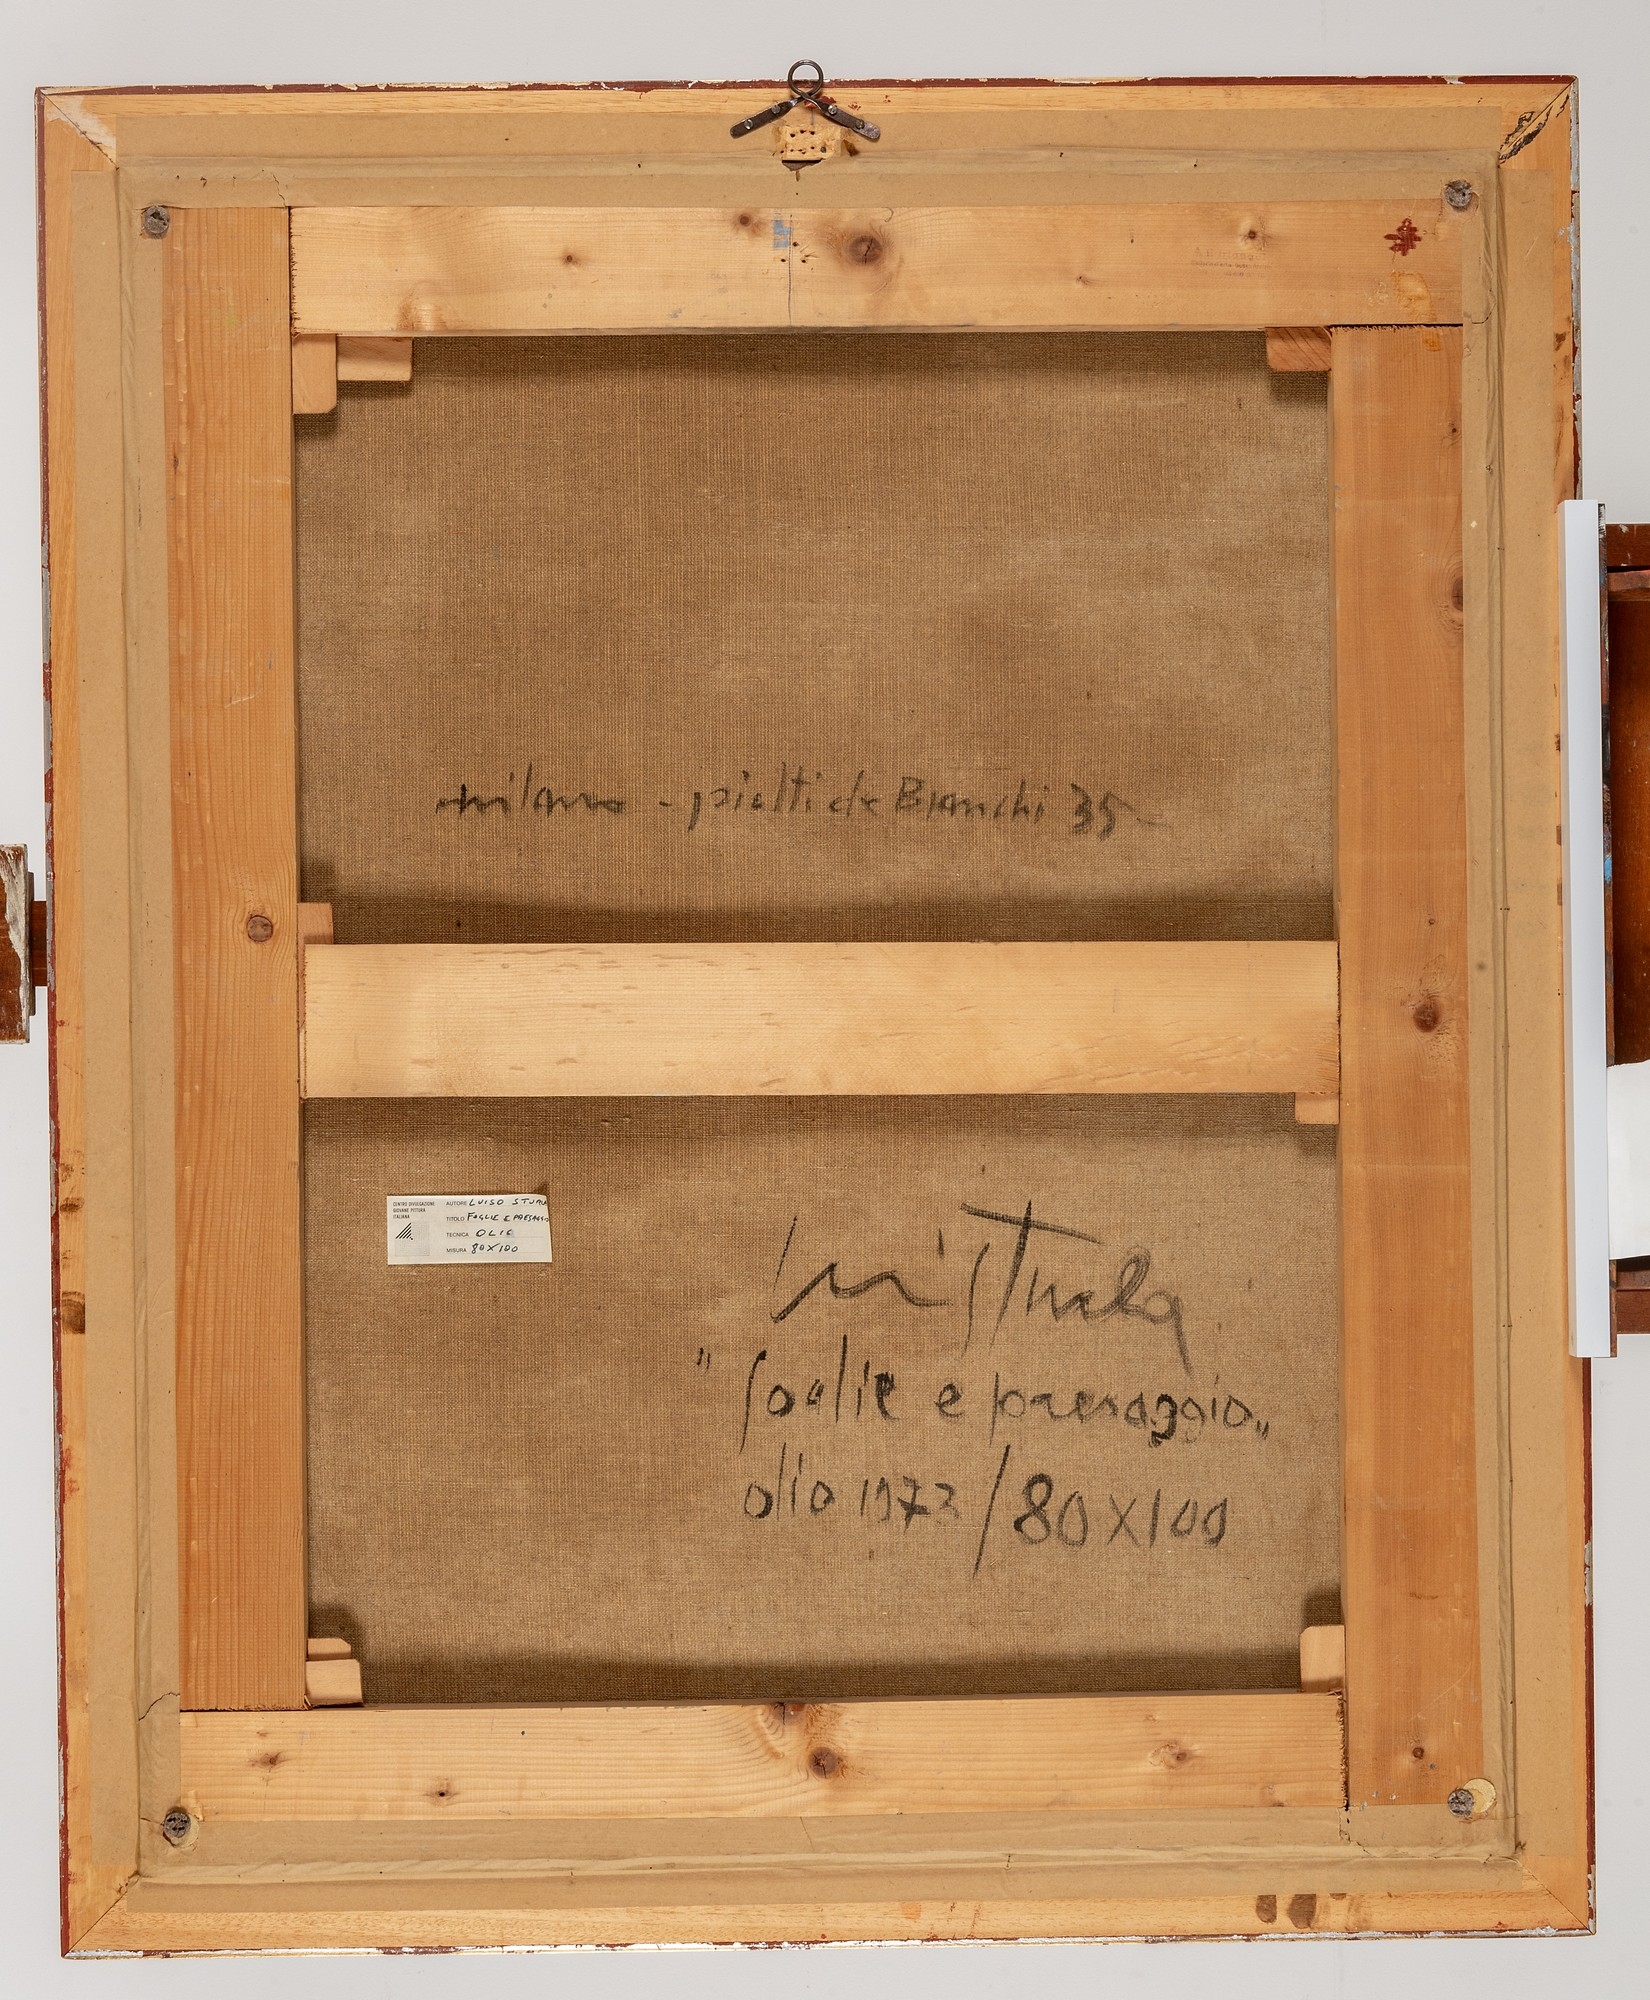 milano - piolti de Bianchi 35
CENTRO DIVULGAZIONE
GIOVANE PITTURA
ITALIANA
AUTORE LUISO STURLA
TITOLO FOGLIE E PAESAGGIO
TECNICA OLIO
MISURA 80X100
Luiso Sturla
"foglie e paesaggio„
olio 1972 / 80 X 100